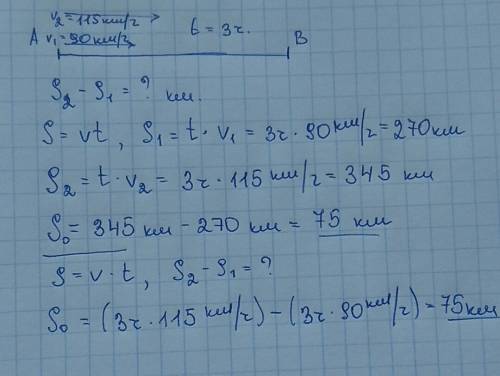 v₂=115км/г
A v₁=90км/г t = 3г. B
S₂ - S₁ = ? км.
S = vt, S₁ = t · v₁ = 3г · 90 км/г = 270км
S₂ = t · v₂ = 3г · 115 км/г = 345 км
S₀ = 345 км - 270 км = 75 км
S = v · t, S₂ - S₁ = ?
S₀ = (3г · 115 км/г) - (3г · 90км/г) = 75км